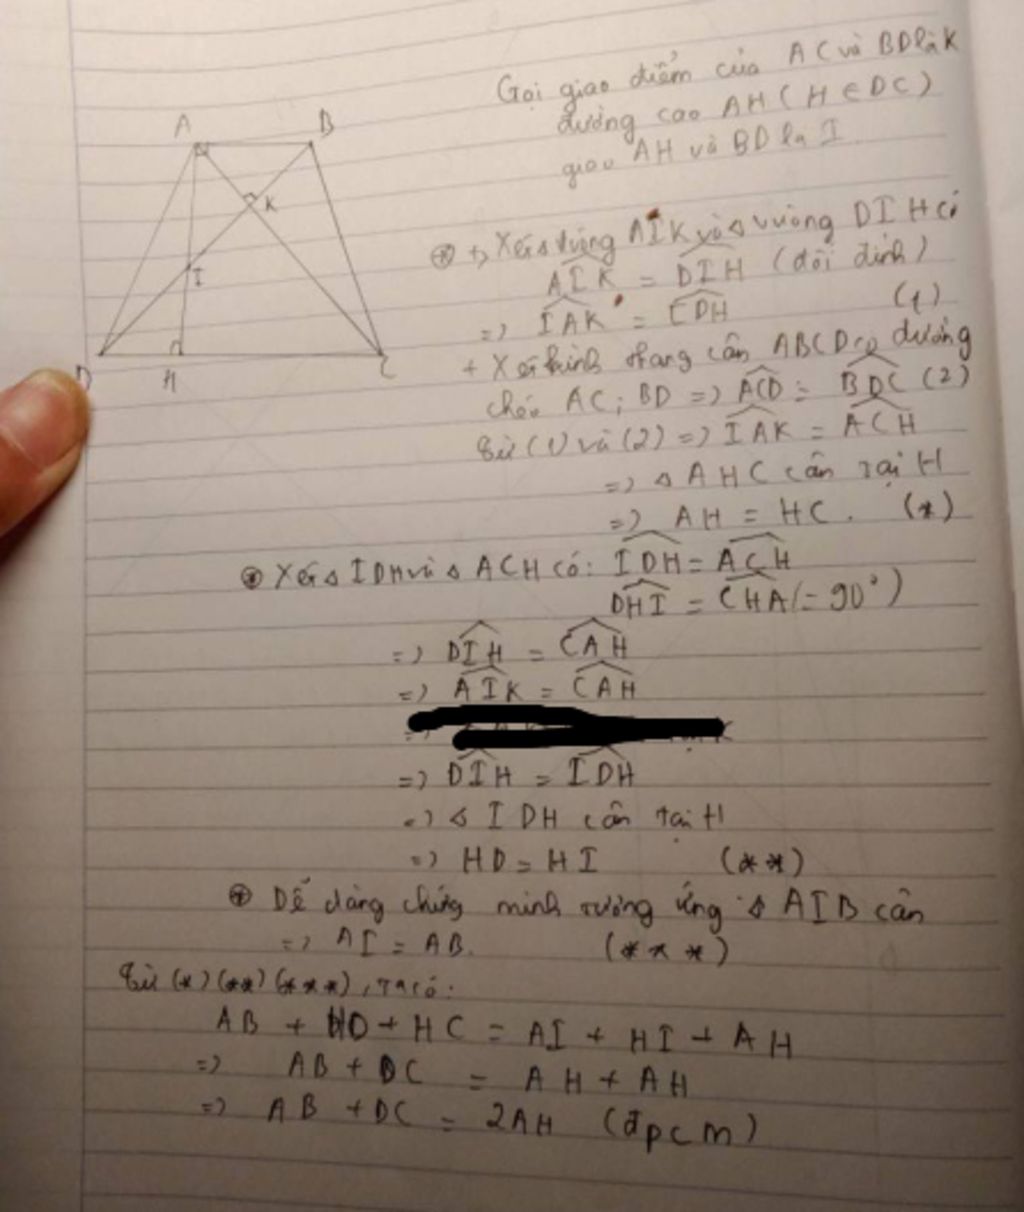 Gọi giao điểm của AC và BD là K
đường cao AH (H ∈ DC)
giao AH và BD là I.
A B
K
I
D H C
⊛ +, Xét Δ vuông AIK và Δ vuông DIH có
AIK = DIH (đối đỉnh)
=> IAK = IDH (1)
+ Xét hình thang cân ABCD có đường
chéo AC; BD => ACD = BDC (2)
Từ (1) và (2) => IAK = ACH
=> Δ AHC cân tại H
=> AH = HC. (*)
⊛ Xét Δ IDH và Δ ACH có: IDH = ACH
DHI = CHA (= 90°)
=> DIH = CAH
=> AIK = CAH
=> DIH = IDH
=> Δ IDH cân tại H
=> HD = HI (**)
⊛ Dễ dàng chứng minh tương ứng Δ AIB cân
=> AI = AB. (***)
Từ (*) (**) (***), ta có:
AB + HD + HC = AI + HI + AH
=> AB + DC = AH + AH
=> AB + DC = 2AH (đpcm)